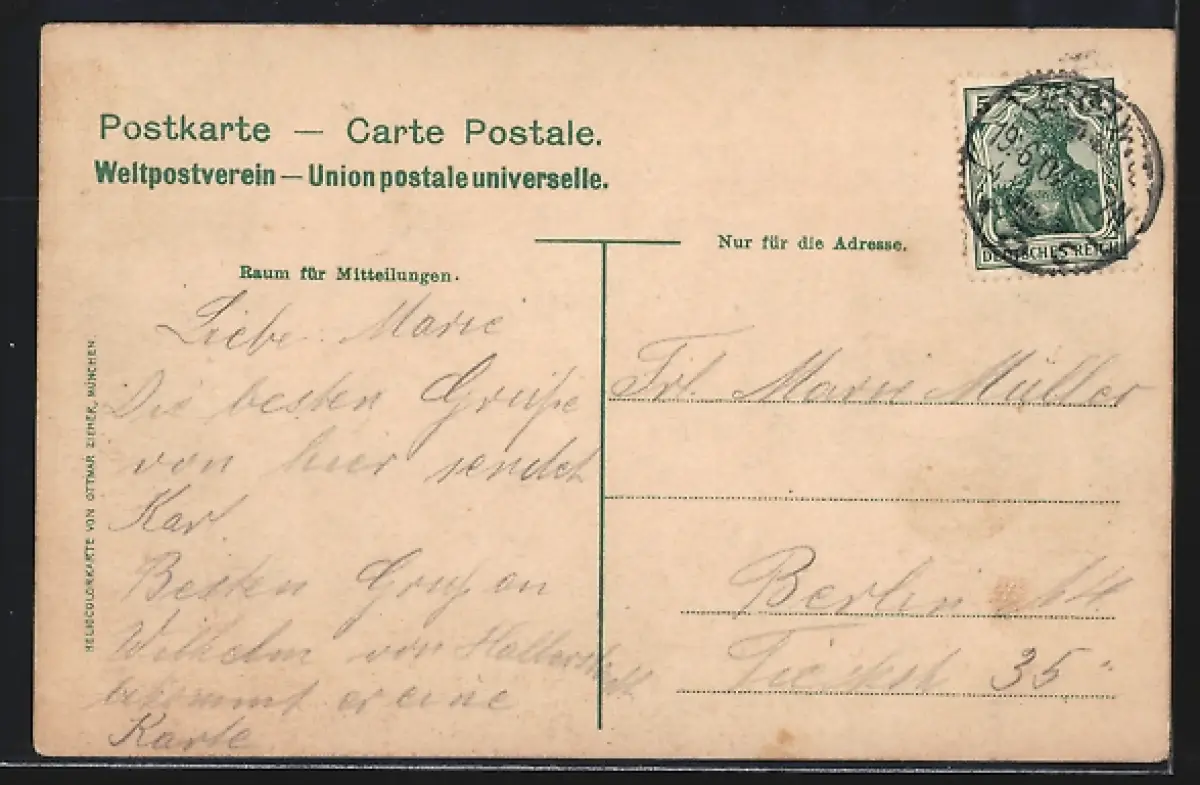 Postkarte — Carte Postale.
Weltpostverein — Union postale universelle.
Nur für die Adresse.
Raum für Mitteilungen.
5
DEUTSCHES REICH
19.6.07
Liebe Marie
Die besten Grüße
von hier sendet
Karl
Besten Gruß an
Wilhelm von Halberstadt
bekommt er eine
Karte
Frl. Marie Müller
Berlin N4
Tieckst 35
HELIOCOLORKARTE VON OTTMAR ZIEHER, MÜNCHEN.